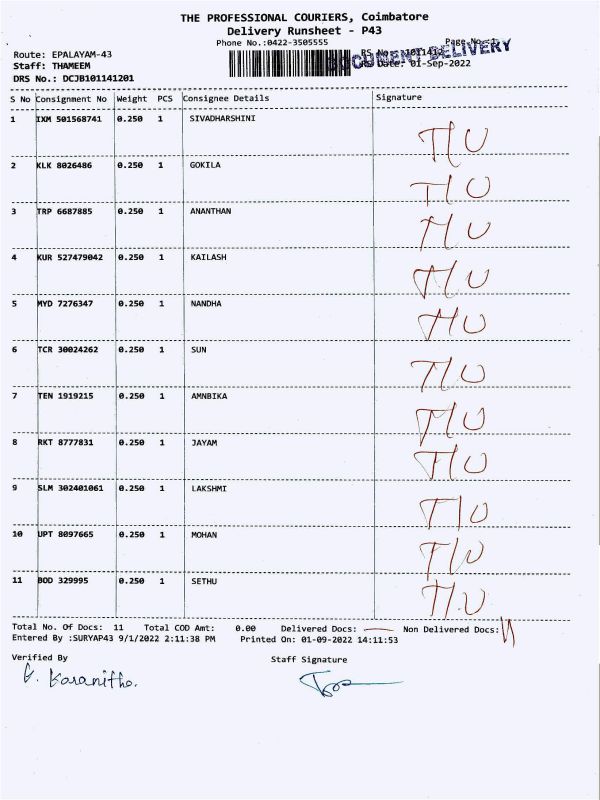 THE PROFESSIONAL COURIERS, Coimbatore
Delivery Runsheet - P43
Phone No.:0422-3505555
Page No.: 1
Route: EPALAYAM-43
DOCUMENT DELIVERY
Staff: THAMEEM
RS Date: 01-Sep-2022
DRS No.: DCJB101141201
S No Consignment No Weight PCS Consignee Details Signature
1 IXM 501568741 0.250 1 SIVADHARSHINI T/U
2 KLK 8026486 0.250 1 GOKILA T/U
3 TRP 6687885 0.250 1 ANANTHAN T/U
4 KUR 527479042 0.250 1 KAILASH T/U
5 MYD 7276347 0.250 1 NANDHA T/U
6 TCR 30024262 0.250 1 SUN T/U
7 TEN 1919215 0.250 1 AMNBIKA T/U
8 RKT 8777831 0.250 1 JAYAM T/U
9 SLM 302401061 0.250 1 LAKSHMI T/U
10 UPT 8097665 0.250 1 MOHAN T/U
11 BOD 329995 0.250 1 SETHU T/U
Total No. Of Docs: 11 Total COD Amt: 0.00 Delivered Docs: — Non Delivered Docs: 11
Entered By :SURYAP43 9/1/2022 2:11:38 PM Printed On: 01-09-2022 14:11:53
Verified By Staff Signature